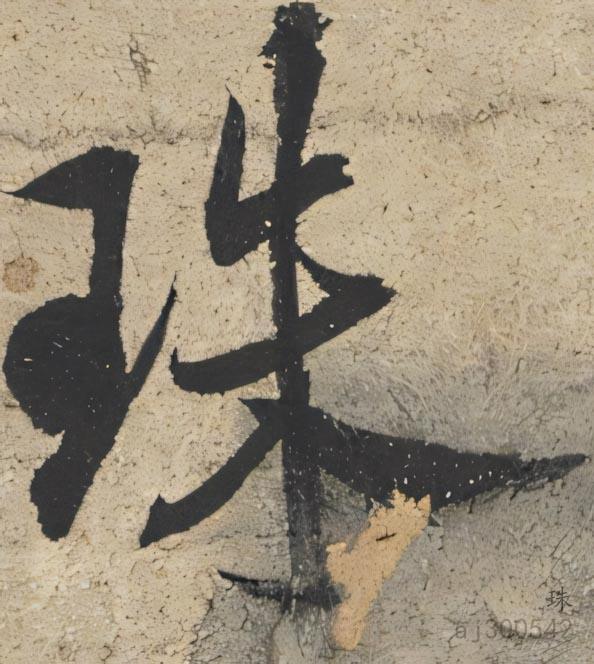 珠
珠
aj300542